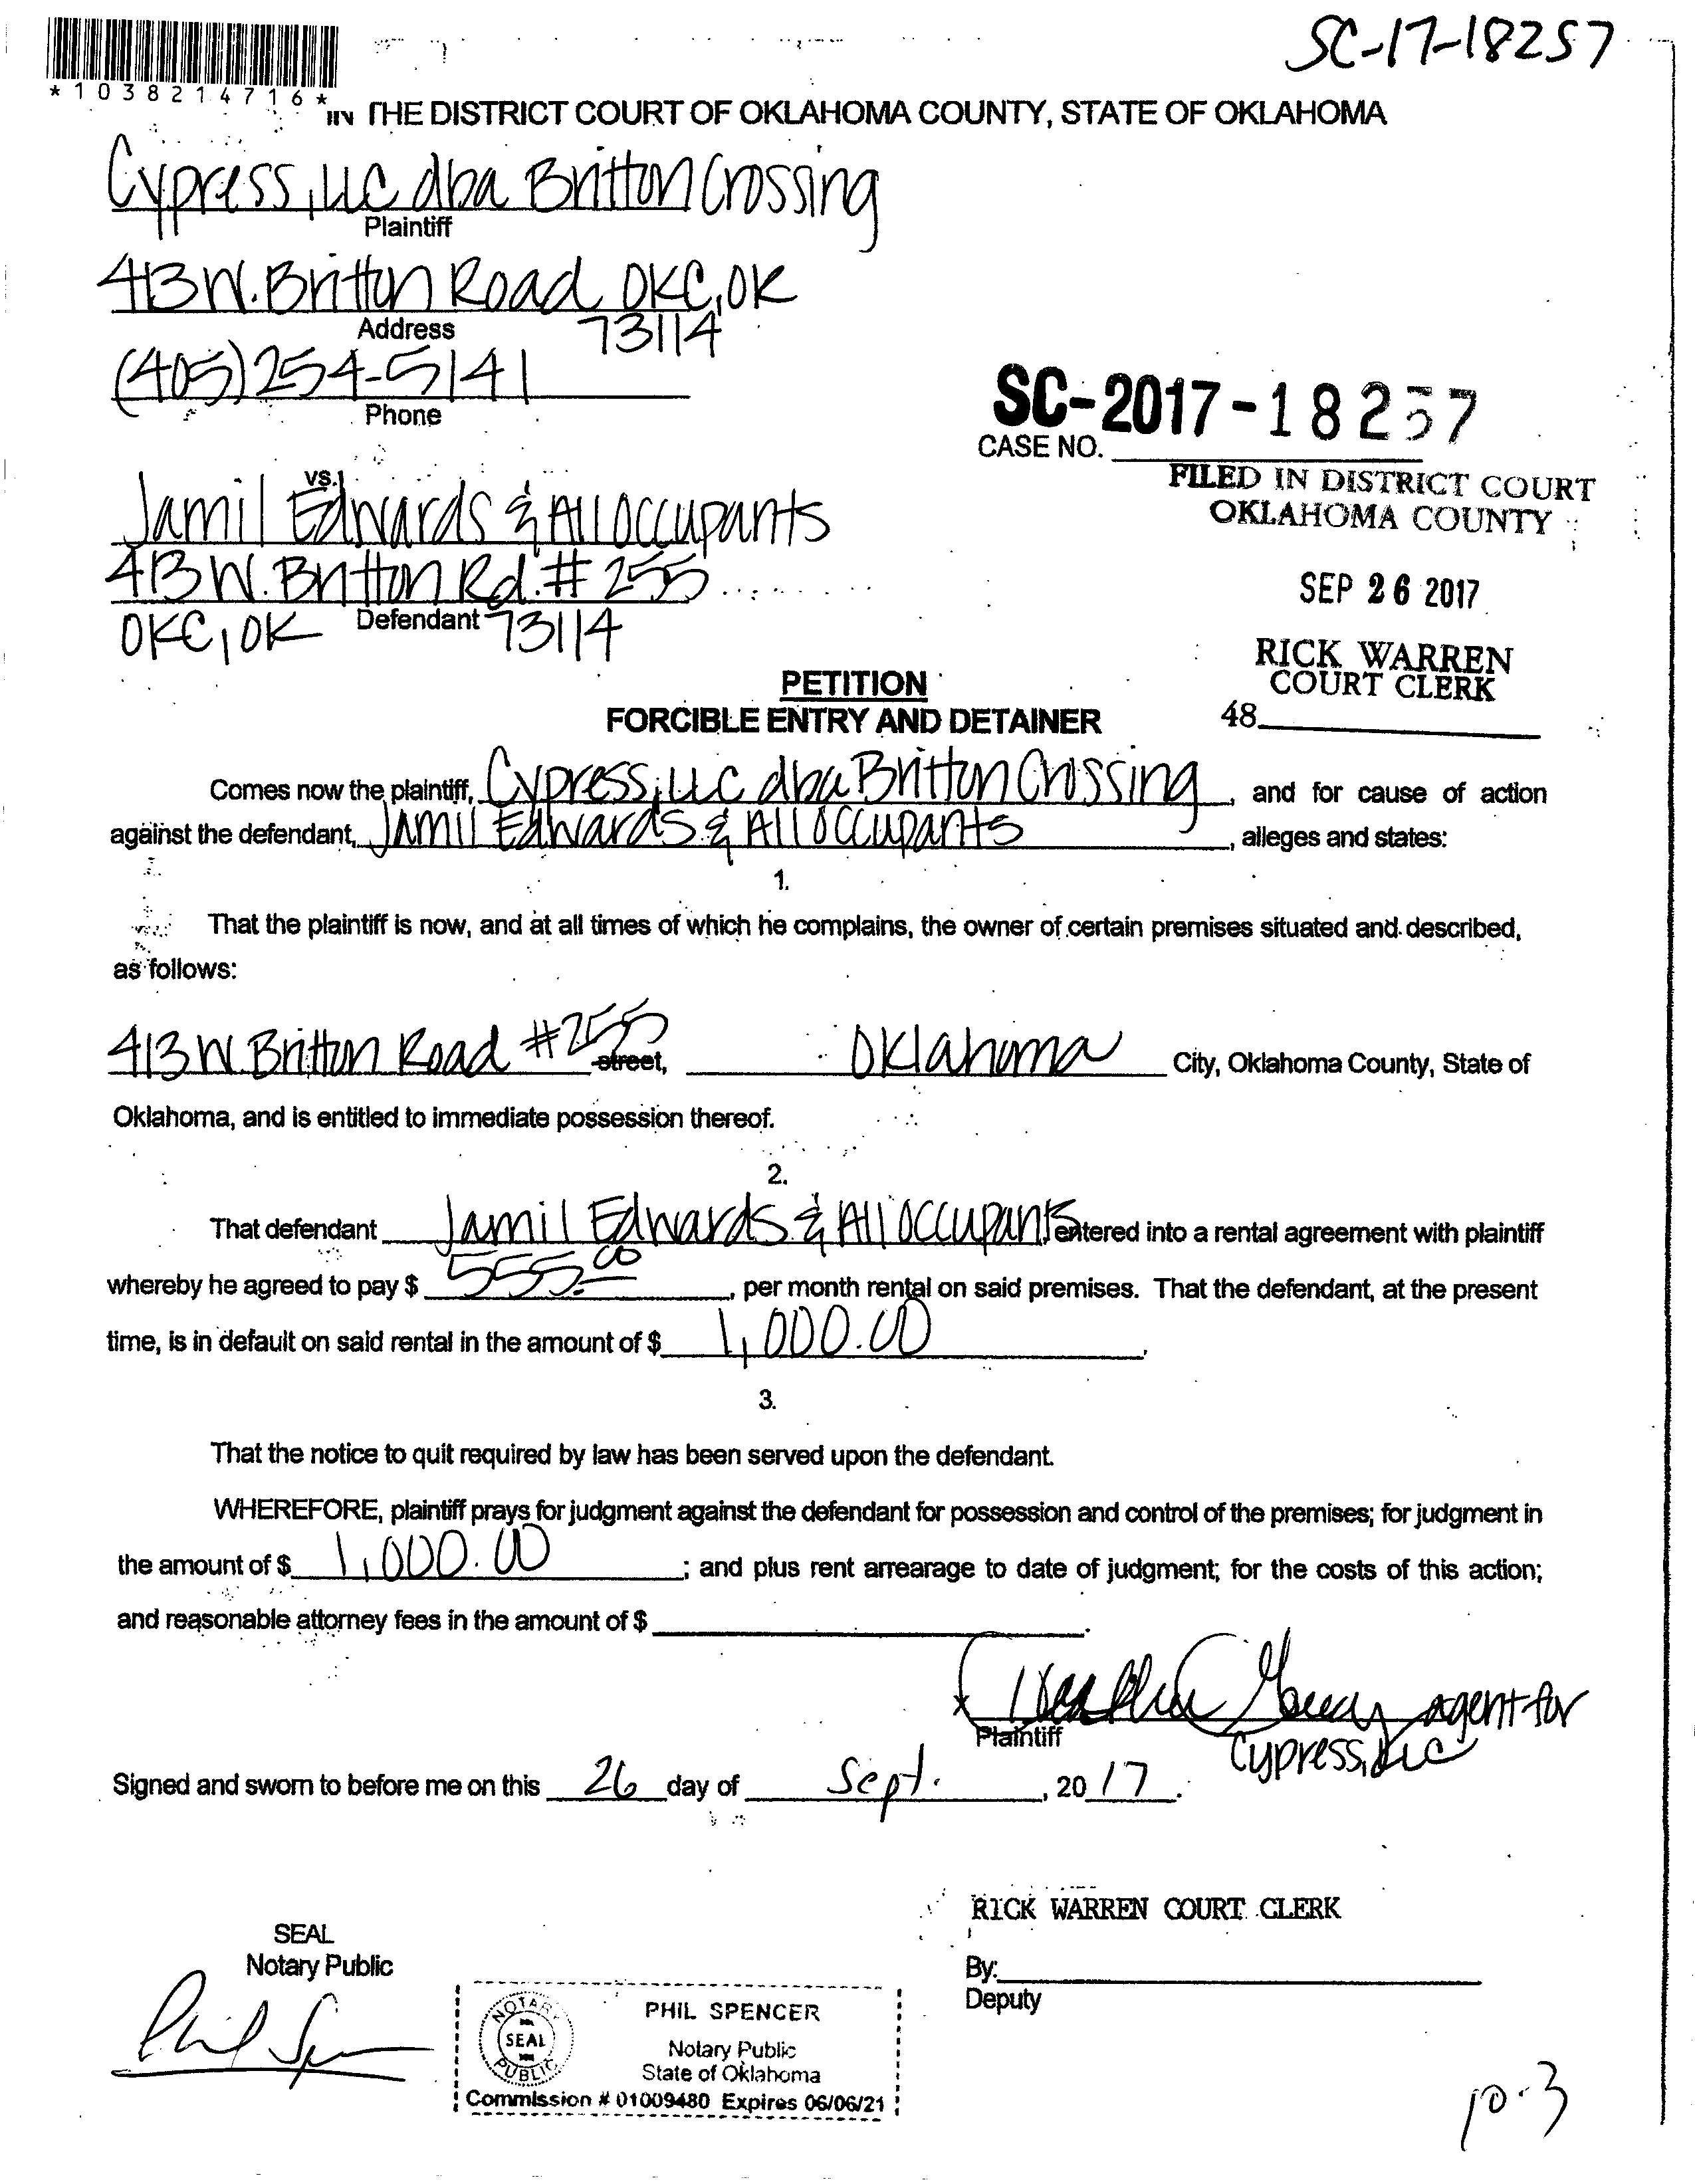 SC-17-18257
*1038214716*
IN THE DISTRICT COURT OF OKLAHOMA COUNTY, STATE OF OKLAHOMA
Cypress, LLC dba Britton Crossing
Plaintiff
413 W. Britton Road OKC, OK
Address 73114
(405) 254-5141
Phone
SC-2017-18257
CASE NO.
FILED IN DISTRICT COURT
OKLAHOMA COUNTY
SEP 26 2017
RICK WARREN
COURT CLERK
48
vs.
Jamil Edwards & All Occupants
413 W. Britton Rd. # 255
Defendant
OKC, OK 73114
PETITION
FORCIBLE ENTRY AND DETAINER
Comes now the plaintiff, Cypress, LLC dba Britton Crossing, and for cause of action
against the defendant, Jamil Edwards & All Occupants, alleges and states:
1.
That the plaintiff is now, and at all times of which he complains, the owner of certain premises situated and described,
as follows:
413 W. Britton Road #255 street, Oklahoma City, Oklahoma County, State of
Oklahoma, and is entitled to immediate possession thereof.
2.
That defendant Jamil Edwards & All Occupants entered into a rental agreement with plaintiff
whereby he agreed to pay $ 555.00, per month rental on said premises. That the defendant, at the present
time, is in default on said rental in the amount of $ 1,000.00.
3.
That the notice to quit required by law has been served upon the defendant.
WHEREFORE, plaintiff prays for judgment against the defendant for possession and control of the premises; for judgment in
the amount of $ 1,000.00; and plus rent arrearage to date of judgment; for the costs of this action;
and reasonable attorney fees in the amount of $.
x agent for
Plaintiff Cypress, LLC
Signed and sworn to before me on this 26 day of Sept., 2017.
RICK WARREN COURT CLERK
SEAL
Notary Public
By:
Deputy
Phil Spencer
NOTARY
SEAL
PUBLIC
PHIL SPENCER
Notary Public
State of Oklahoma
Commission # 01009480 Expires 06/06/21
10-3